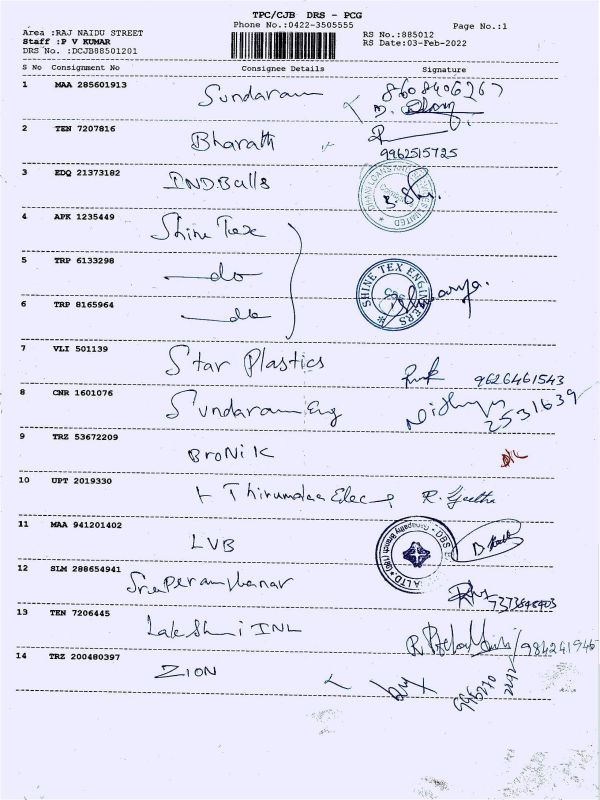 TPC/CJB DRS - PCG
Area :RAJ NAIDU STREET
Phone No.:0422-3505555
Page No.:1
Staff :P V KUMAR
RS No.:885012
DRS No. :DCJB88501201
RS Date:03-Feb-2022
S No Consignment No Consignee Details Signature
1 MAA 285601913 Sundaram 8608406267
2 TEN 7207816 Bharath
9962515725
3 EDQ 21373182 INDBalls
4 APK 1235449 Shine Tex
5 TRP 6133298 do
SHINE TEX ENGINEERS
6 TRP 8165964 do
7 VLI 501139 Star Plastics 9626461543
8 CNR 1601076 Sundaram Eng 2531639
9 TRZ 53672209 BroNiK
10 UPT 2019330
11 MAA 941201402 LVB
12 SLM 288654941
13 TEN 7206445 Lakshmi INL
14 TRZ 200480397 ZION